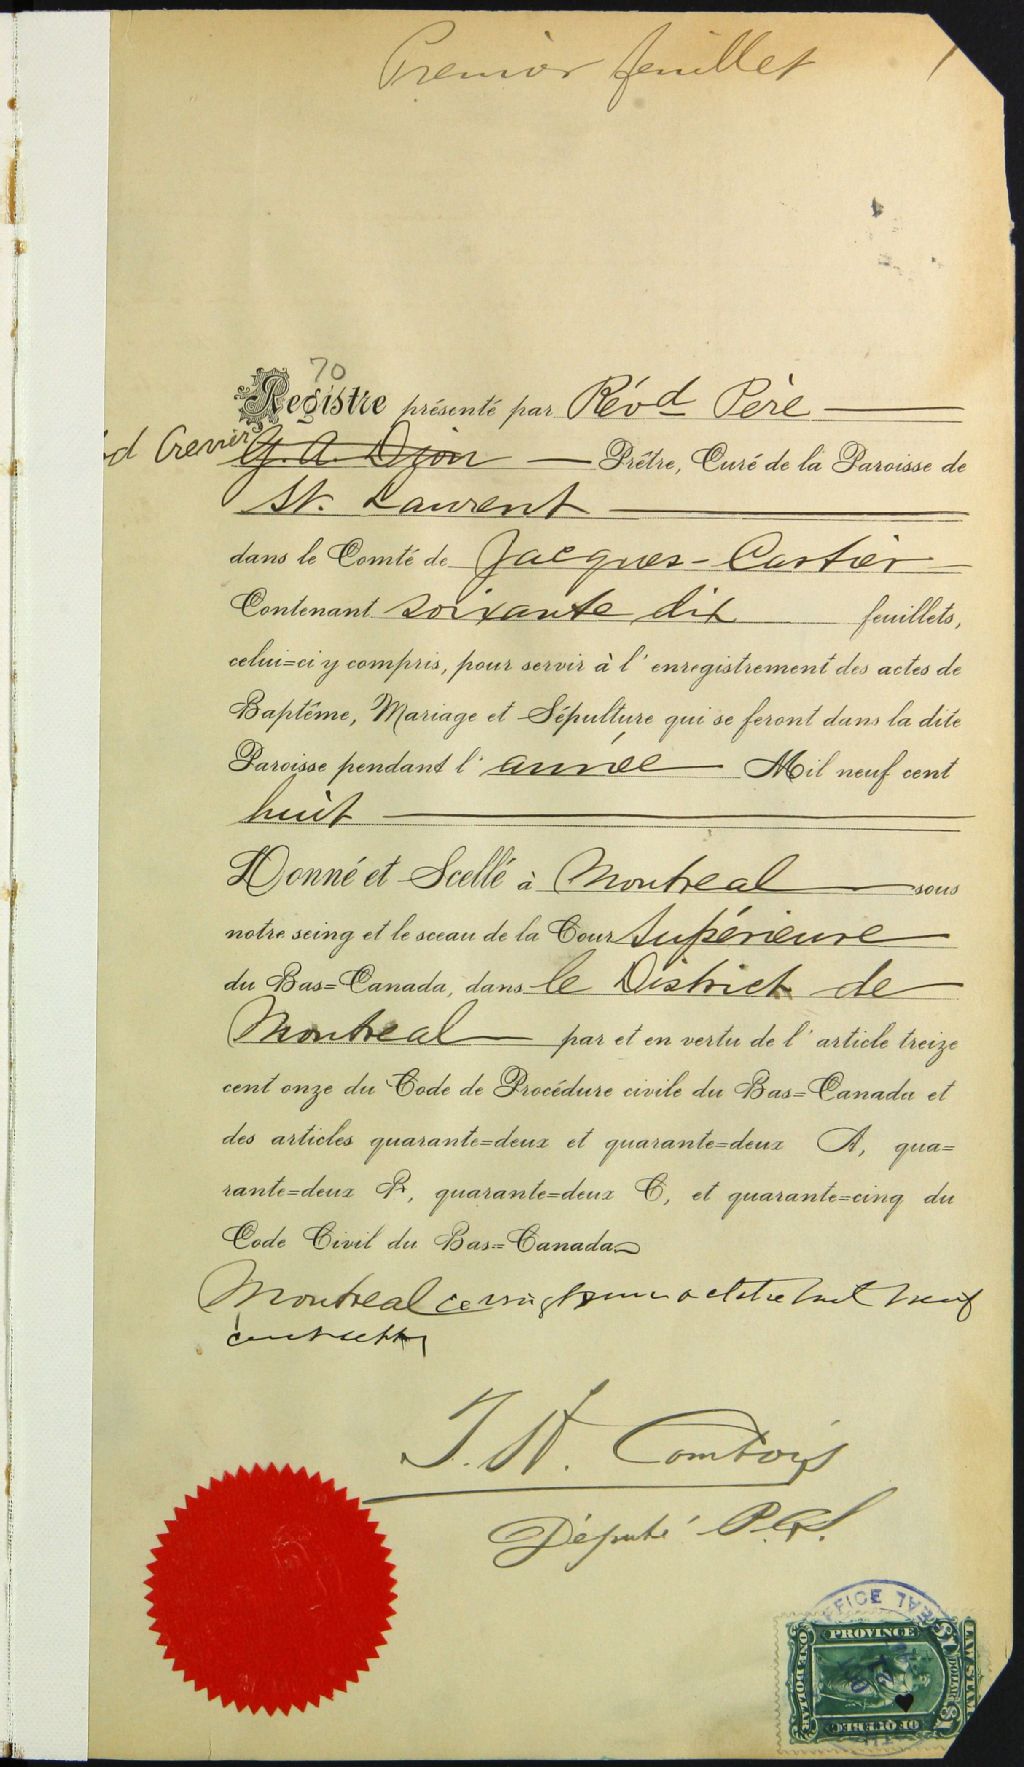 Premier feuillet
70
Registre présenté par Révd Père
d Crevier G. A. Dion Prêtre, Curé de la Paroisse de
St. Laurent
dans le Comté de Jacques-Cartier
Contenant soixante dix feuillets,
celui=ci y compris, pour servir à l'enregistrement des actes de
Baptême, Mariage et Sépulture qui se feront dans la dite
Paroisse pendant l'année Mil neuf cent
huit
Donné et Scellé à Montreal sous
notre seing et le sceau de la Cour Supérieure
du Bas=Canada, dans le District de
Montreal par et en vertu de l'article treize
cent onze du Code de Procédure civile du Bas=Canada et
des articles quarante=deux et quarante=deux A, qua=
rante=deux B, quarante=deux C, et quarante=cinq du
Code Civil du Bas=Canada
Montreal ce octobre mil neuf
cent sept
Comtois
Député P.C.S.
OFFICE
PROVINCE
OF QUEBEC
ONE DOLLAR
$1 DOLLAR $1
LAW STAMP